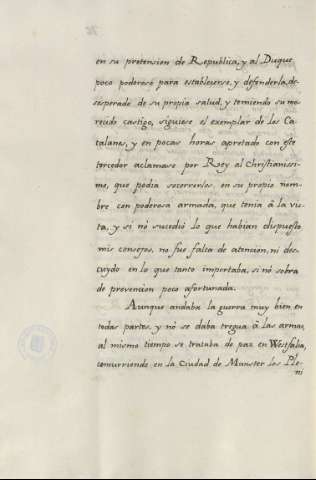 en su pretension de Republica, y al Duque
poco poderoso para establecerse, y defenderla, de-
sesperado de su propia salud, y temiendo su me-
recido castigo, siguiese el exemplar de los Ca-
talanes, y en pocas horas apretado con este
torcedor aclamase por Rey al Christianissi-
mo, que podia socorrerlos en su propio nom-
bre con poderosa armada, que tenia à la vis-
ta, y si nó sucedió lo que habian dispuesto
mis consejos, no fué falta de atencion, ni des-
cuydo en lo que tanto importaba, si nó sobra
de prevencion poco afortunada.
Aunque andaba la guerra muy bien en
todas partes, y nó se daba tregua à las armas,
al mismo tiempo se trataba de paz en Westfalia,
concurriendo en la Ciudad de Munster los Ple-
ni